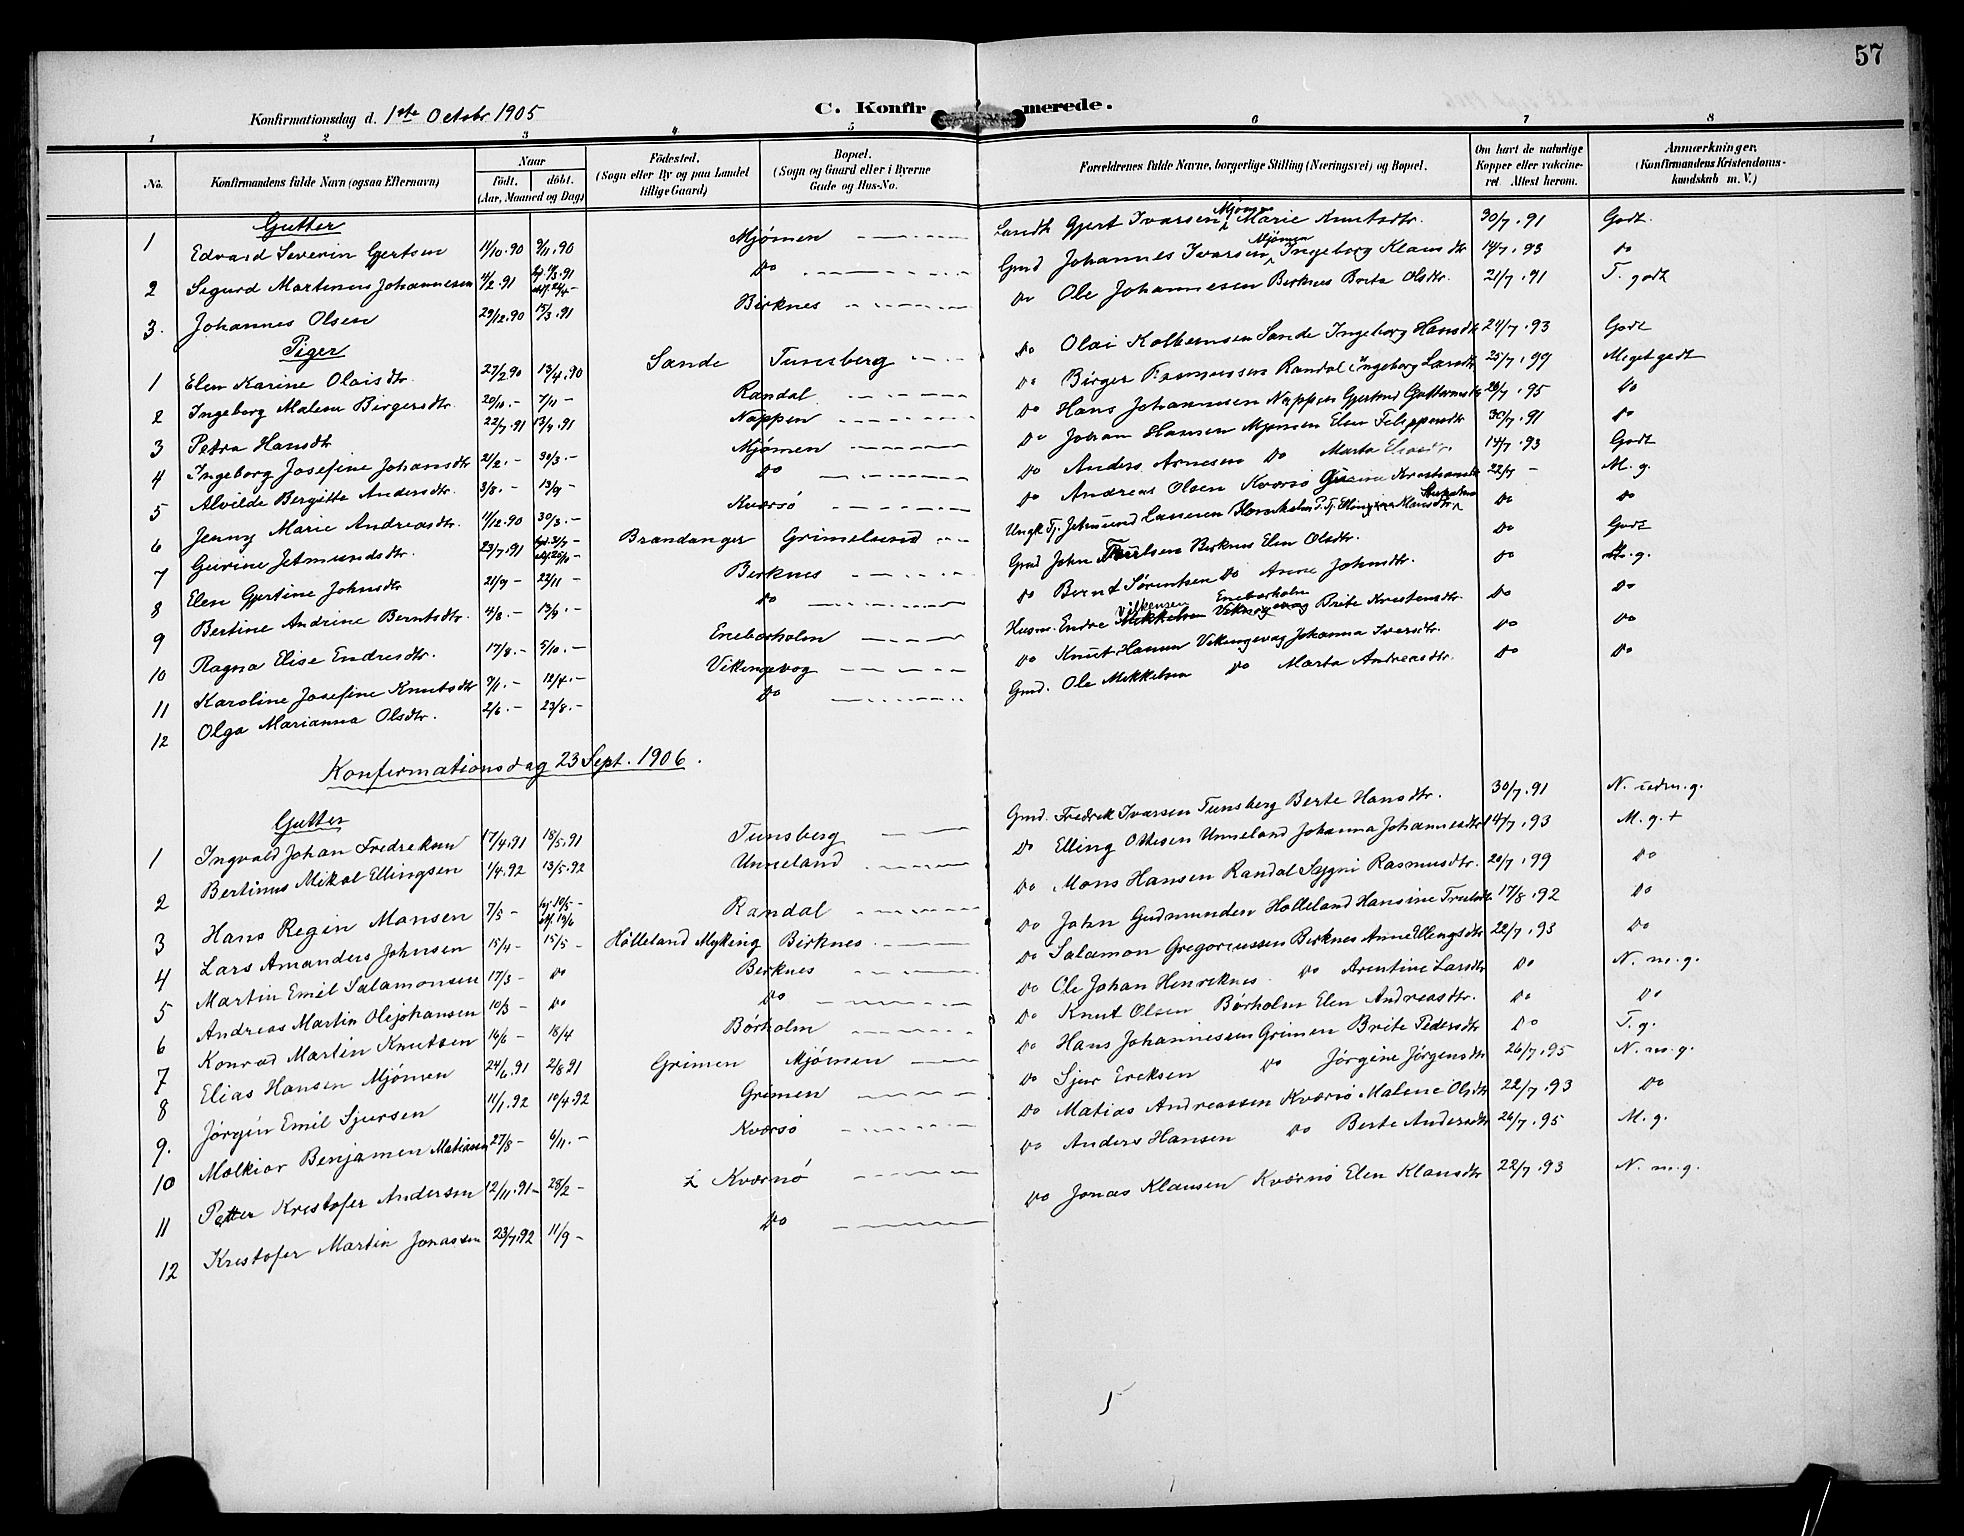 57
Konfirmationsdag d. 1ste Octobr 1905
C. Konfirmerede.
1 2 3 4 5 6 7 8
No. Konfirmandens fulde Navn (ogsaa Efternavn) Naar Födt. döbt. (Aar, Maaned og Dag) Födested. (Sogn eller By og paa Landet tillige Gaard) Bopæl. (Sogn og Gaard eller i Byerne Gade og Hus-No. Forældrenes fulde Navne, borgerlige Stilling (Næringsvei) og Bopæl. Om havt de naturlige Kopper eller vakcineret. Attest herom. Anmærkninger. (Konfirmandens Kristendomskundskab m. V.)
Gutter
1 Edvard Severin Gjertsen 11/10.90 9/11.90 Mjømen Landh Gjert Ivarsen Mjømen Marie Knutsdtr. 30/7.91 Godt
2 Sigurd Martinus Johannesen 4/2.91 Do Gmd Johannes Ivarsen Mjømen Ingeborg Klausdtr 14/7.93 Do
3. Johannes Olsen 29/12.90 15/3.91 Birknes Do Ole Johannesen Birknes Brita Olsdtr. 21/7.91 T. godt
Piger
1 Elen Karine Olaisdtr. 27/2.90 13/4.90 Sande Tunsberg Do Olai Kolbernsen Sande Ingeborg Hansdtr 24/7.93 Godt
2 Ingeborg Malene Birgersdtr. 20/10.- 7/11 - Randal Do Birger Rasmussen Randal Ingeborg Larsdtr. 25/7.99 Meget godt
3 Petra Hansdtr 22/7.91 13/9.91 Nappen Do Hans Johannesen Nappen Gjertrud Guttormsdtr 26/7.95 Do
4 Ingeborg Josefine Johansdtr 21/2.- 30/3.- Mjømen Do Johan Hansen Mjømen Elen Filippusdtr 30/7.91 Do
5 Alvilde Bergitte Andersdtr. 3/8.- 13/9 - Do Do Anders Arnesen Do Marta 14/7.93 Godt
6 Jenny Marie Andreasdtr. 11/12.90 30/3.- Kværsø Do Andreas Olsen Kværsø 22/7 - M. g.
7 Guirine Jetmundsdtr. 23/7.91 Brandanger Grimelsund Ungk. Tj. Jetmund Lassesen Do Do
8 Elen Gjertine Johnsdtr 21/9 - 22/11 - Birknes Gmd John Birknes Elen Olsdtr. Do Godt
9 Bertine Andrine Berntsdtr. 4/8.- 13/9.- Do Do Bernt Sørentsen Do Anne Johnsdtr. Do M. g.
10 Ragna Elise Endresdtr. 17/8.- 5/10.- Eneboholm Husm. Endre Vilkensen Eneboholm Brite Kristensdtr. Do Do
11 Karoline Josefine Knutsdtr 9/1.- 12/4.- Vikingevog Do Knut Hansen Vikingevag Johanna Iversdtr. Do Do
12 Olga Marianna Olsdtr. 2/6.- 23/8.- Do Gmd. Ole Mikkelsen Do Marta Andreasdtr. Do Do
Konfirmationsdag 23 Sept. 1906.
Gutter
1 Ingvald Johan Fredriksen 17/4.91 18/5.91 Tunsberg Gmd. Fredrik Ivarsen Tunsberg Berte Hansdtr. 30/7.91 N. udm. g.
2 Bertinus Mikal Ellingsen 1/4.92 13/5.92 Unneland Do Elling Ottesen Unneland Johanna Johannesdtr 14/7.93 M. g. +
3 Hans Regin Monsen 7/5 - Randal Do Mons Hansen Randal Rasmusdtr. 20/7.99 Do
4 Lars Amandus Johnsen 15/4 - 15/5 - Hølleland Myking Birknes Do John Gudmundsen Hølleland Hansine 17/8.92 Do
5 Martin Emil Salamonsen 17/3 - Do Birknes Do Salamon Gregoriussen Birknes Anne Ellingsdtr 22/7.93 Do
6 Andreas Martin Olejohansen 10/3 - Do Do Do Ole Johan Henriknes Do Arentine Larsdtr Do N. m. g.
7 Konrad Martin Knutsen 14/6 - 18/4 Børholm Do Knut Olsen Børholm Elen Andreasdtr. Do Do
8 Elias Hansen Mjømen 24/6.91 2/8.91 Grimen Mjømen Do Hans Johannessen Grimen Brite Pedersdtr Do T. g.
9. Jørgin Emil Sjursen 11/1.92 10/4.92 Grimen Do Sjur Ericksen Do Jørgine Jørgensdtr 26/7.95 N. m. g.
10 Melkior Benjamen Matiasen 27/8 - 6/11.- Kværsø Do Matias Andreassen Kværsø Malene Olsdtr 22/7.93 Do
11 Petter Kristofer Andersen 12/11.91- 28/2 - Kværnø Do Anders Hansen Do Berte Andersdtr 26/7.95 M. g.
12 Kristofer Martin Jonassen 23/7.92 11/9 - Do Do Jonas Klausen Kværnø Elen Klausdtr 22/7.93 N. m. g.